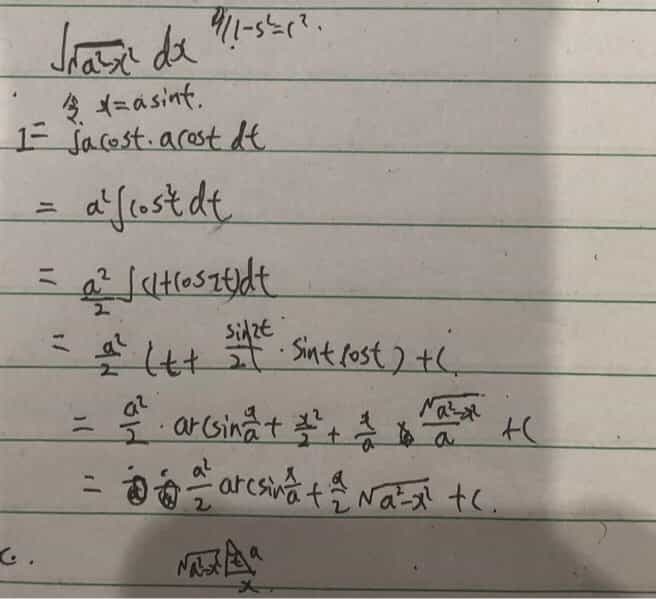 ∫√(a²-x²) dx 1-s²=c².
令 x=asint.
I= ∫acost·acost dt
= a²∫cos²t dt
= a²/2 ∫(1+cos2t)dt
= a²/2 (t+ sin2t/2 · sint cost) +C
= a²/2 · arcsin x/a + x²/2 + x/a · √(a²-x²)/a +C
= a²/2 arcsin x/a + x/2 √(a²-x²) +C.
c. √(a²-x²) t a
x